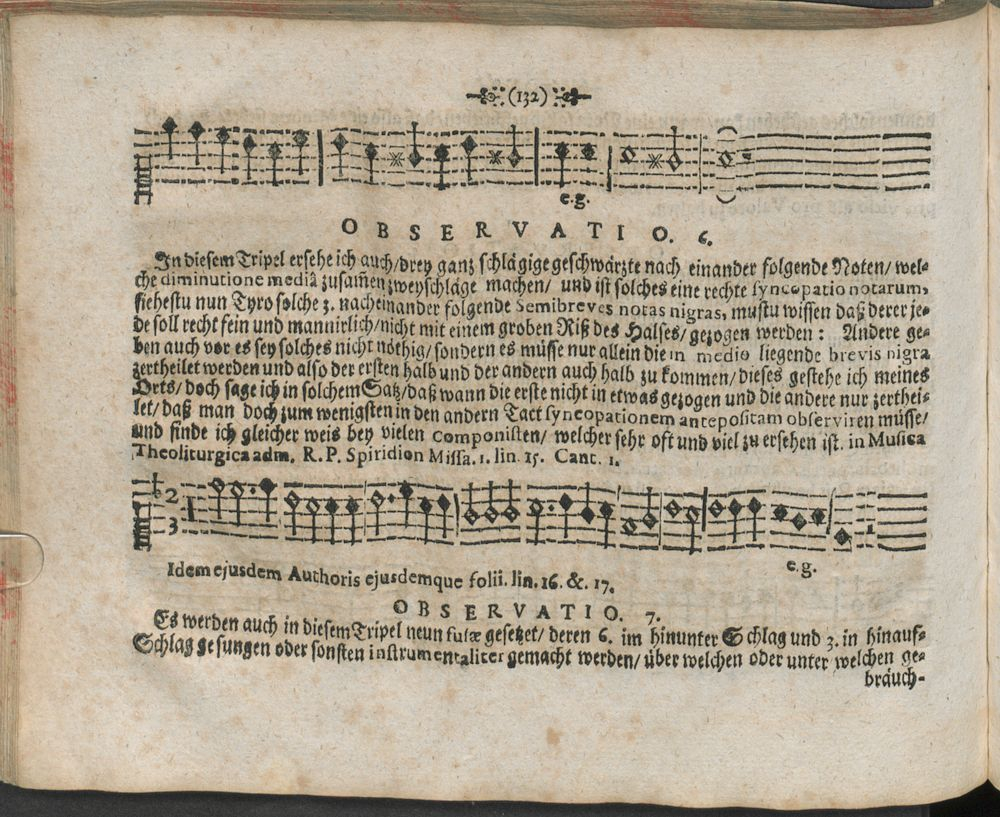 (132)
e.g.
OBSERVATIO. 6.
In diesem Tripel ersehe ich auch/drey gantz schlägige geschwärzte nach einander folgende Noten/ wel-
che diminutione mediâ zusam̃en zweyschläge machen/ und ist solches eine rechte syncopatio notarum,
siehestu nun Tyro solche 3. nacheinander folgende Semibreves notas nigras, mustu wissen daß derer je-
de soll recht fein und mannirlich/nicht mit einem groben Riß des Halses/ gezogen werden: Andere ge-
ben auch vor es sey solches nicht nöthig/ sondern es müsse nur allein die in medio liegende brevis nigra
zertheilet werden und also der ersten halb und der andern auch halb zu kommen/ dieses gestehe ich meines
Orts/ doch sage ich in solchem Satz/daß wann die erste nicht in etwas gezogen und die andere nur zerthei-
let/ daß man doch zum wenigsten in den andern Tact syncopationem antepositam observiren müsse/
und finde ich gleicher weis bey vielen Componisten/ welcher sehr oft und viel zu ersehen ist. in Musica
Theoliturgica adm. R. P. Spiridion Missa. 1. lin. 15. Cant. 1.
2
3
1
e.g.
Idem ejusdem Authoris ejusdemque folii. lin. 16. &. 17.
OBSERVATIO. 7.
Es werden auch in diesem Tripel neun fusæ gesetzet/ deren 6. im hinunter Schlag und 3. in hinauf-
Schlag gesungen oder sonsten instrumentaliter gemacht werden/ über welchen oder unter welchen ge-
bräuch-